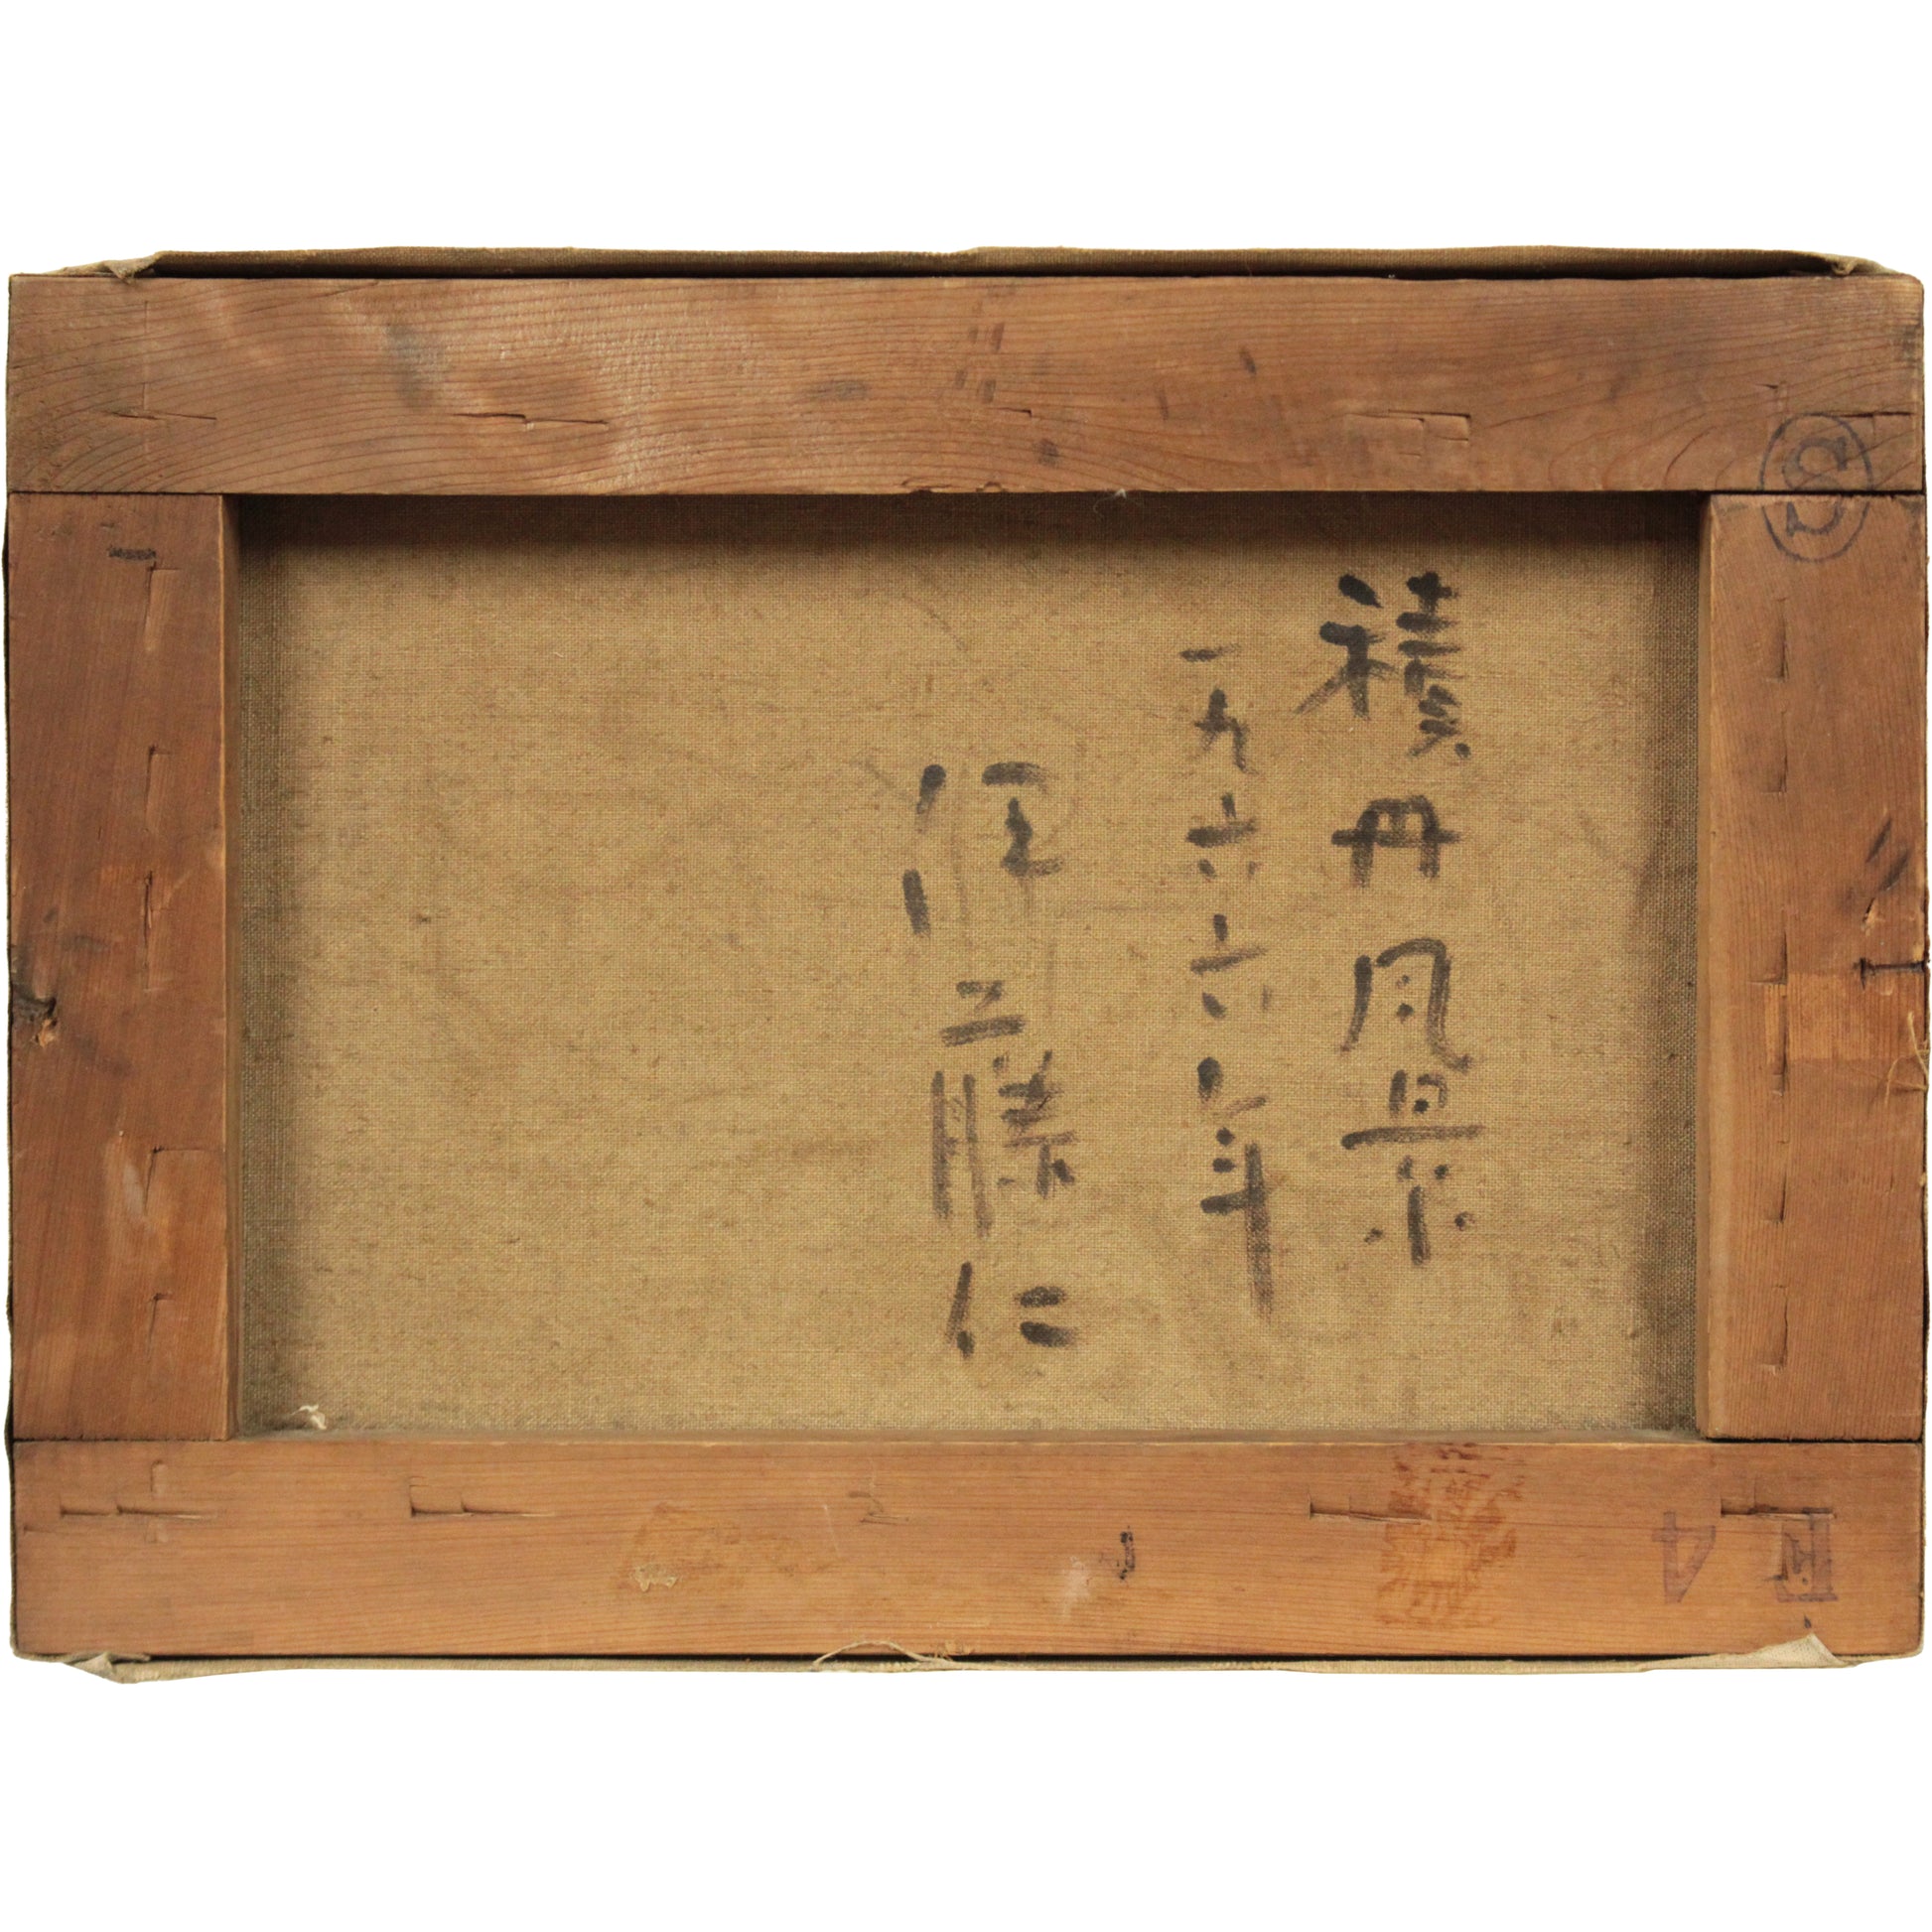 積丹風景
一九六六年
伊藤仁
S
F 4